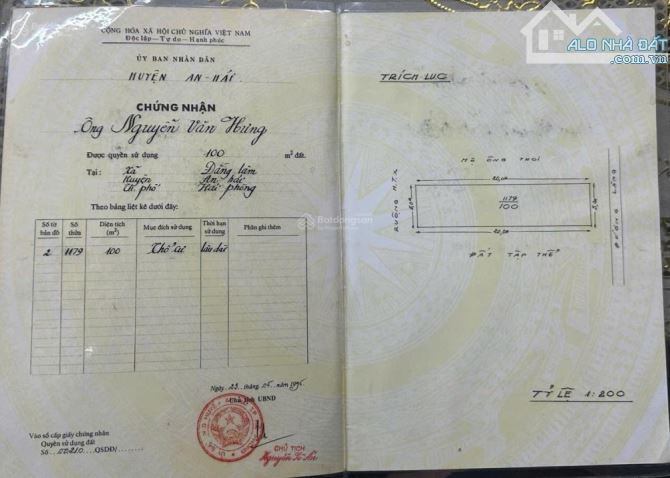 CỘNG HÒA XÃ HỘI CHỦ NGHĨA VIỆT NAM
Độc lập – Tự do – Hạnh phúc
ỦY BAN NHÂN DÂN
HUYỆN AN-HẢI
CHỨNG NHẬN
Ông Nguyễn Văn Hưng
Được quyền sử dụng 100 m² đất.
Tại : Xã Đằng lâm
Huyện An hải
T. phố Hải phòng
Theo bảng liệt kê dưới đây:
Số tờ bản đồ
Số thửa
Diện tích (m²)
Mục đích sử dụng
Thời hạn sử dụng
Phần ghi thêm
2 1179 100 Thổ cư lâu dài
Ngày 23 tháng 05 năm
UBND
CHỦ TỊCH
Vào sổ cấp giấy chứng nhận
Quyền sử dụng đất
Số QSDĐ/
TRÍCH LỤC
MR ÔNG THOI
20,0
RUỘNG H.T.X
1179
100
ĐƯỜNG LÀNG
20,0
ĐẤT TẬP THỂ
TỶ LỆ 1:200
Batdongsan
ALO NHÀ ĐẤT
.com.vn